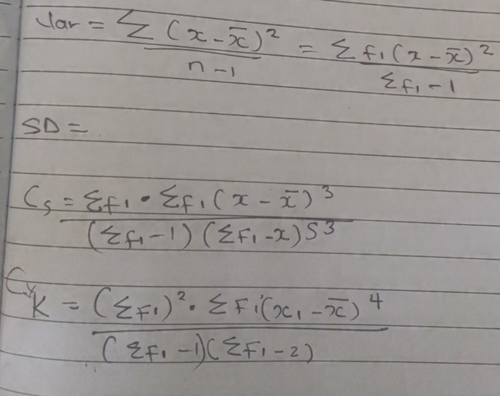 Var = Σ(x-x̄)² / n-1 = Σf₁(x-x̄)² / Σf₁-1
SD =
Cₛ = Σf₁ • Σf₁(x-x̄)³ / (Σf₁-1)(Σf₁-x)S³
CᵥK = (Σf₁)² • Σf₁(x₁-x̄)⁴ / (Σf₁-1)(Σf₁-2)